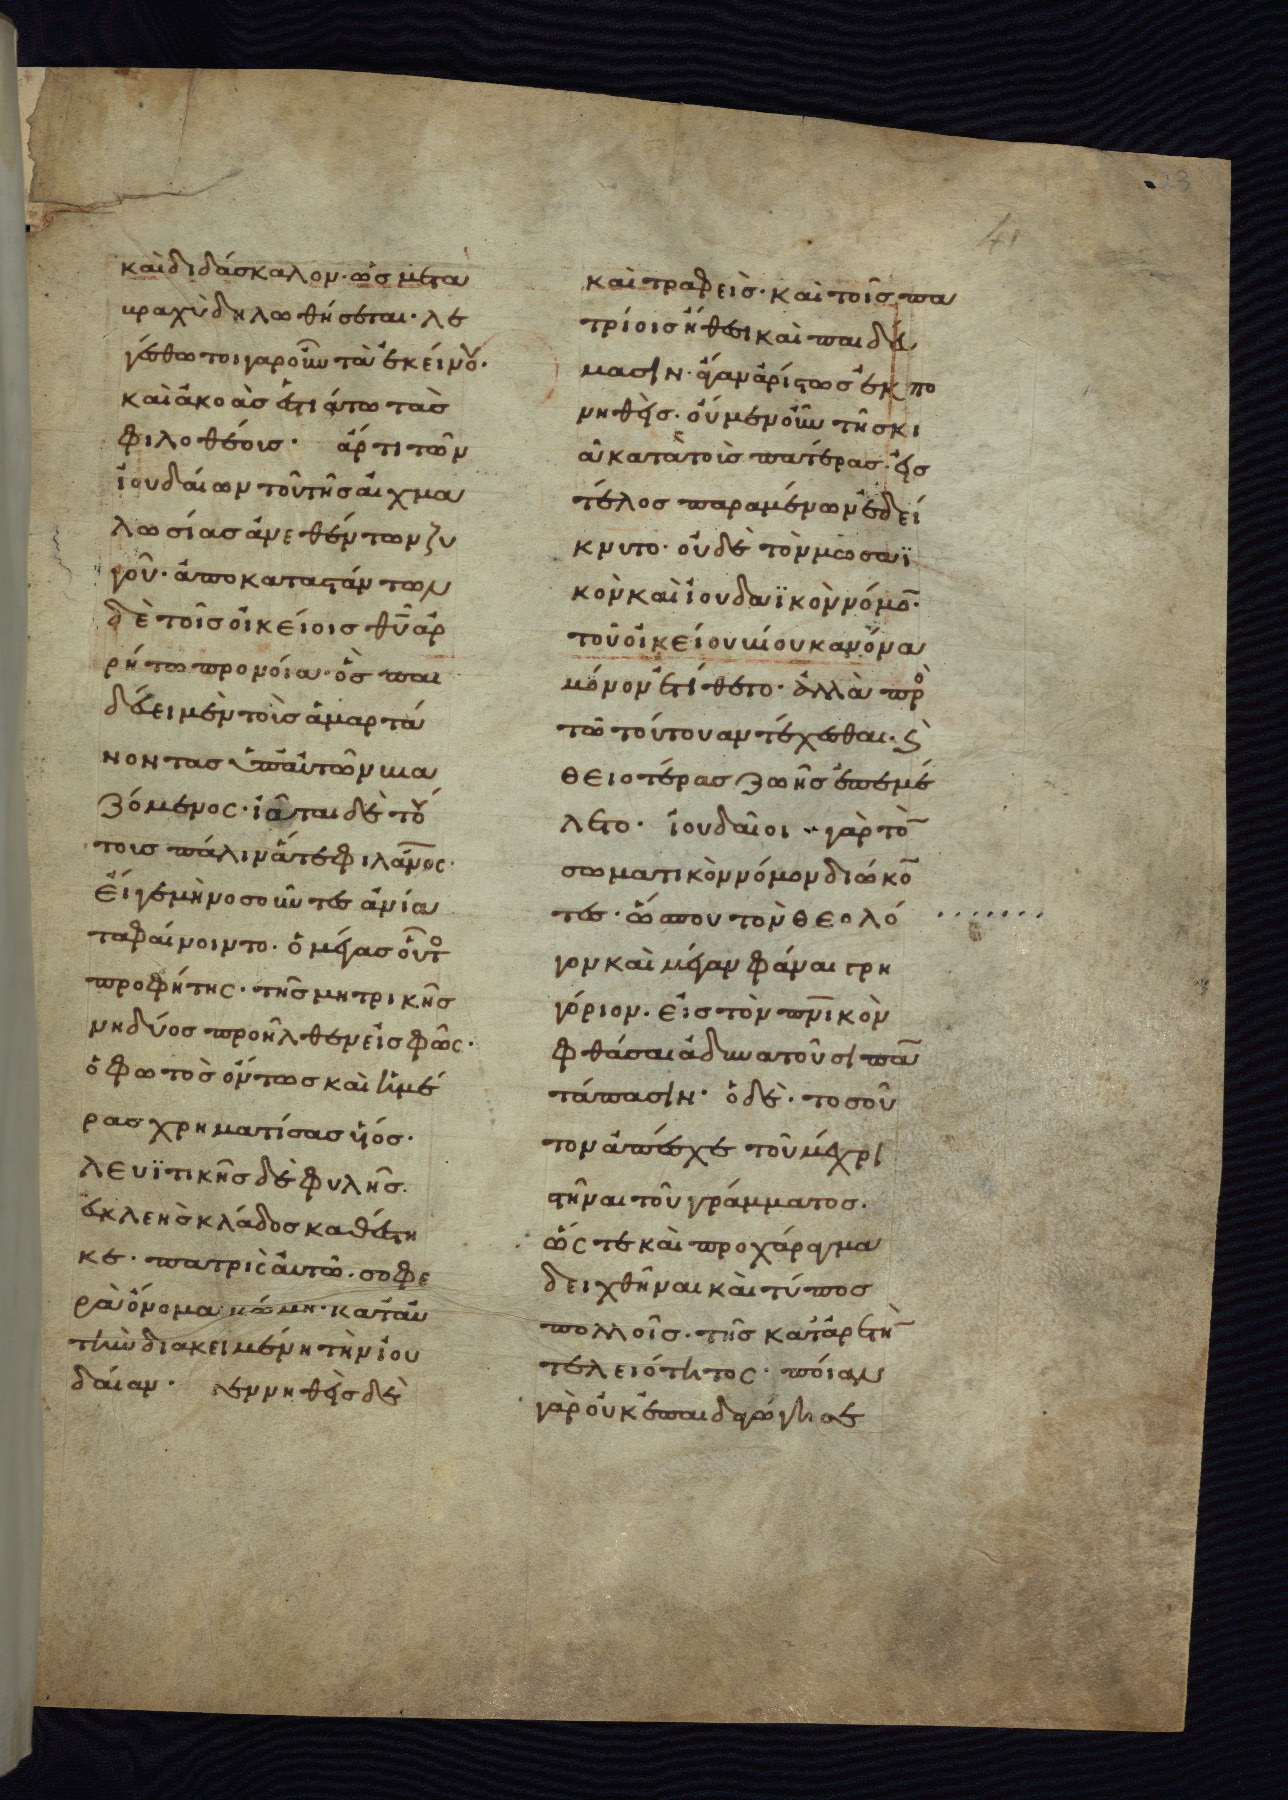 καὶ διδάσκαλον· ὡς μετὰ
μραχὺ δηλωθήσεται· λε
γέσθω τοιγαροῦν τὰ ἐκείνου·
καὶ ἀκοὰς ἑστιάτω τὰς
φιλοθέοις· ἄρτι τῶν
ἰουδαίων τοῦ τῆς αἰχμα
λωσίας ἀνεθέντων ζυ
γοῦ· ἀποκαταστάντων
δὲ τοῖς οἰκείοις θῦ ἀρ
ρήτω προνοία· ὃς παι
δέυει μὲν τοὶς ἁμαρτά
νοντας ὑπ' ἀυτῶν πια
ζόμενος· ἰᾶται δὲ τού
τοις πάλιν ἅτε φιλᾶνος·
εἴ γε μὴ νοσοῦντες ἀνία
τα φαίνοιντο· ὁ μέγας οὗτο
προφήτης· τῆς μητρικῆς
νηδύος προῆλθεν εἰς φῶς·
ὁ φωτὸς ὄντως καὶ ἡμέ
ρας χρηματίσας ϋιός·
λευϊτικῆς δὲ φυλῆς·
ἐκλεκτὸς κλάδος καθέστη
κε· πατρὶς ἀυτῶ· σοφε
ρὰ ὄνομα κώμη· κατ' ἀυ
τὴν διακειμένη τὴν ἰου
δαίαν· γεννηθεὶς δὲ
καὶ τραφεὶς· καὶ τοῖς πα
τρίοις ἤθεσι καὶ παιδέυ
μασιν· ἐναρίστως ἐκπο
νηθεὶς· οὐ μενοῦν τῆ σκι
ᾶ κατὰ τοὶς πατέρας· εἰς
τέλος παραμένων ἐδεί
κνυτο· οὐδὲ τὸν μωσαϊ
κὸν καὶ ἰουδαϊκὸν νόμο̅·
τοῦ οἰκείου βίου κανόνα
μόνον ἐτίθετο· ἀλλὰ πρὸ
τῶ τούτου ἀντέχεσθαι· ϛ
θειοτέρας ζωῆς ἐπεμέ
λετο· ἰουδαῖοι γὰρ τὸ̅
σωματικὸν νόμον διώκο̅
τες· ὥς που τὸν θεολό
γον καὶ μέγαν φάναι γρη
γόριον· εἰς τὸν πνικὸν
φθάσαι ἀδυνατοῦσι πα̅
τάπασιν· ὁ δὲ· τοσοῦ
τον ἀπέσχε τοῦ μέχρι
στῆναι τοῦ γράμματος·
ὥς τε καὶ προχάραγμα
δειχθῆναι καὶ τύπος
πολλοῖς· τῆς κατ' ἀρετὴ̅
τελειότητος· ποίαν
γὰρ οὐκ ἐπαιδαγώγησε